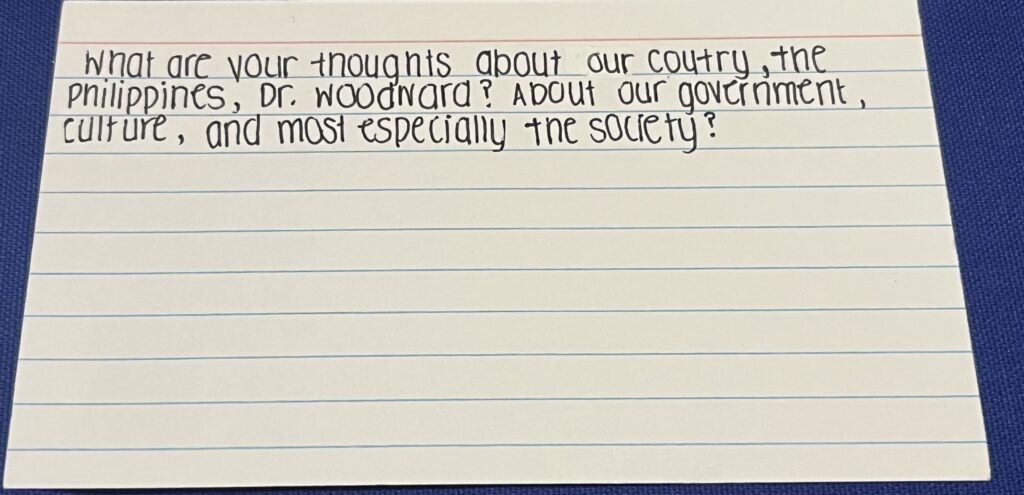 What are your thoughts about our coutry, the
Philippines, Dr. Woodward? About our government,
culture, and most especially the society?